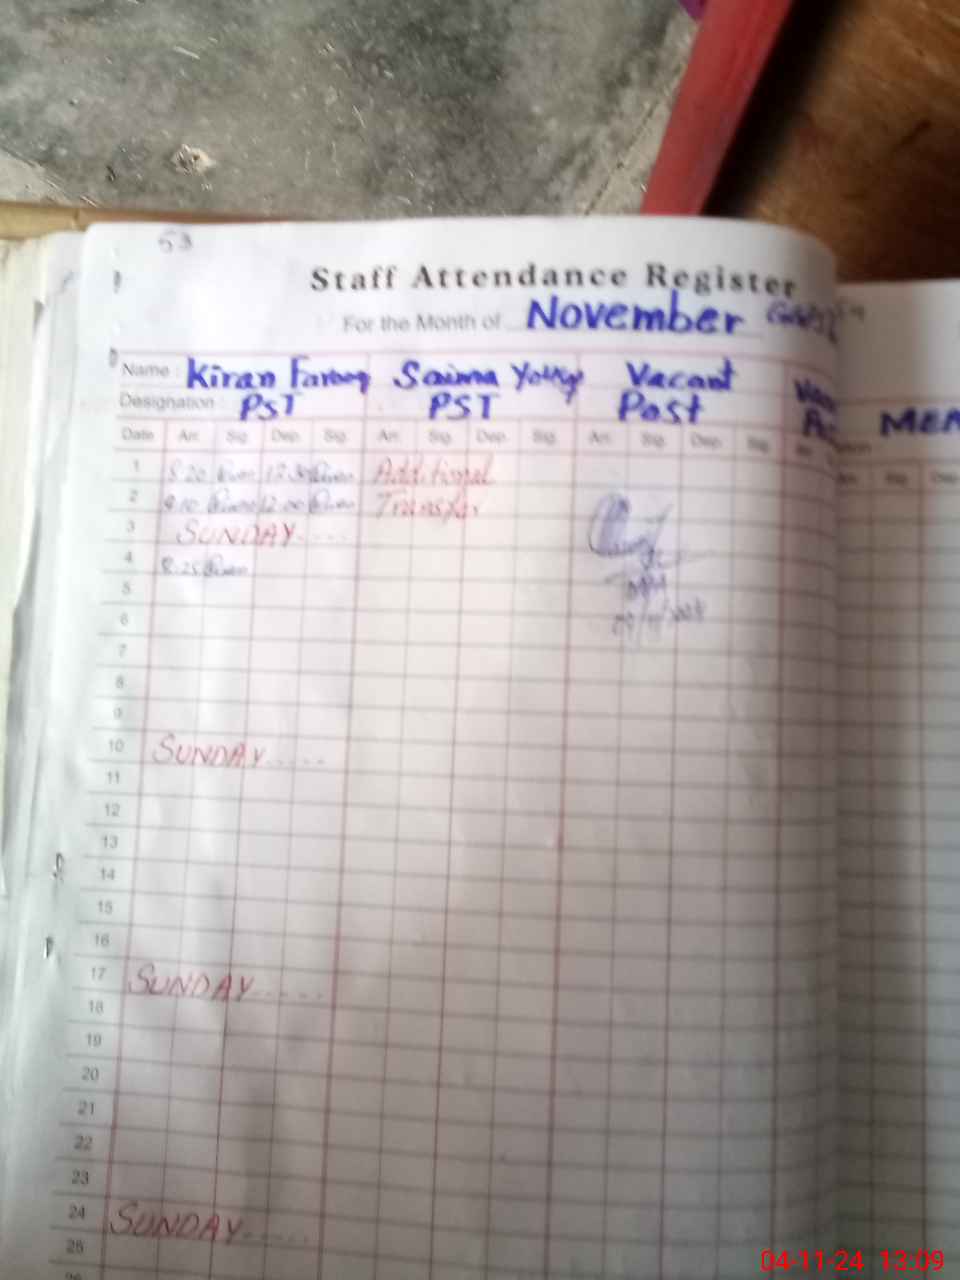 53
Staff Attendance Register
For the Month of November
Name : Kiran Farooq Saima Vacant
Designation : PST PST Post MEA
Date Arr. Sig. Dep. Sig. Arr. Sig. Dep. Sig. Arr. Sig. Dep. Sig.
1 8:20 12:30 Additional
2 8:10 12:00 Transfer
3 SUNDAY.....
4 8:25
5
6
7
8
9
10 SUNDAY.....
11
12
13
14
15
16
17 SUNDAY.....
18
19
20
21
22
23
24 SUNDAY.....
25
26
04-11-24 13:09